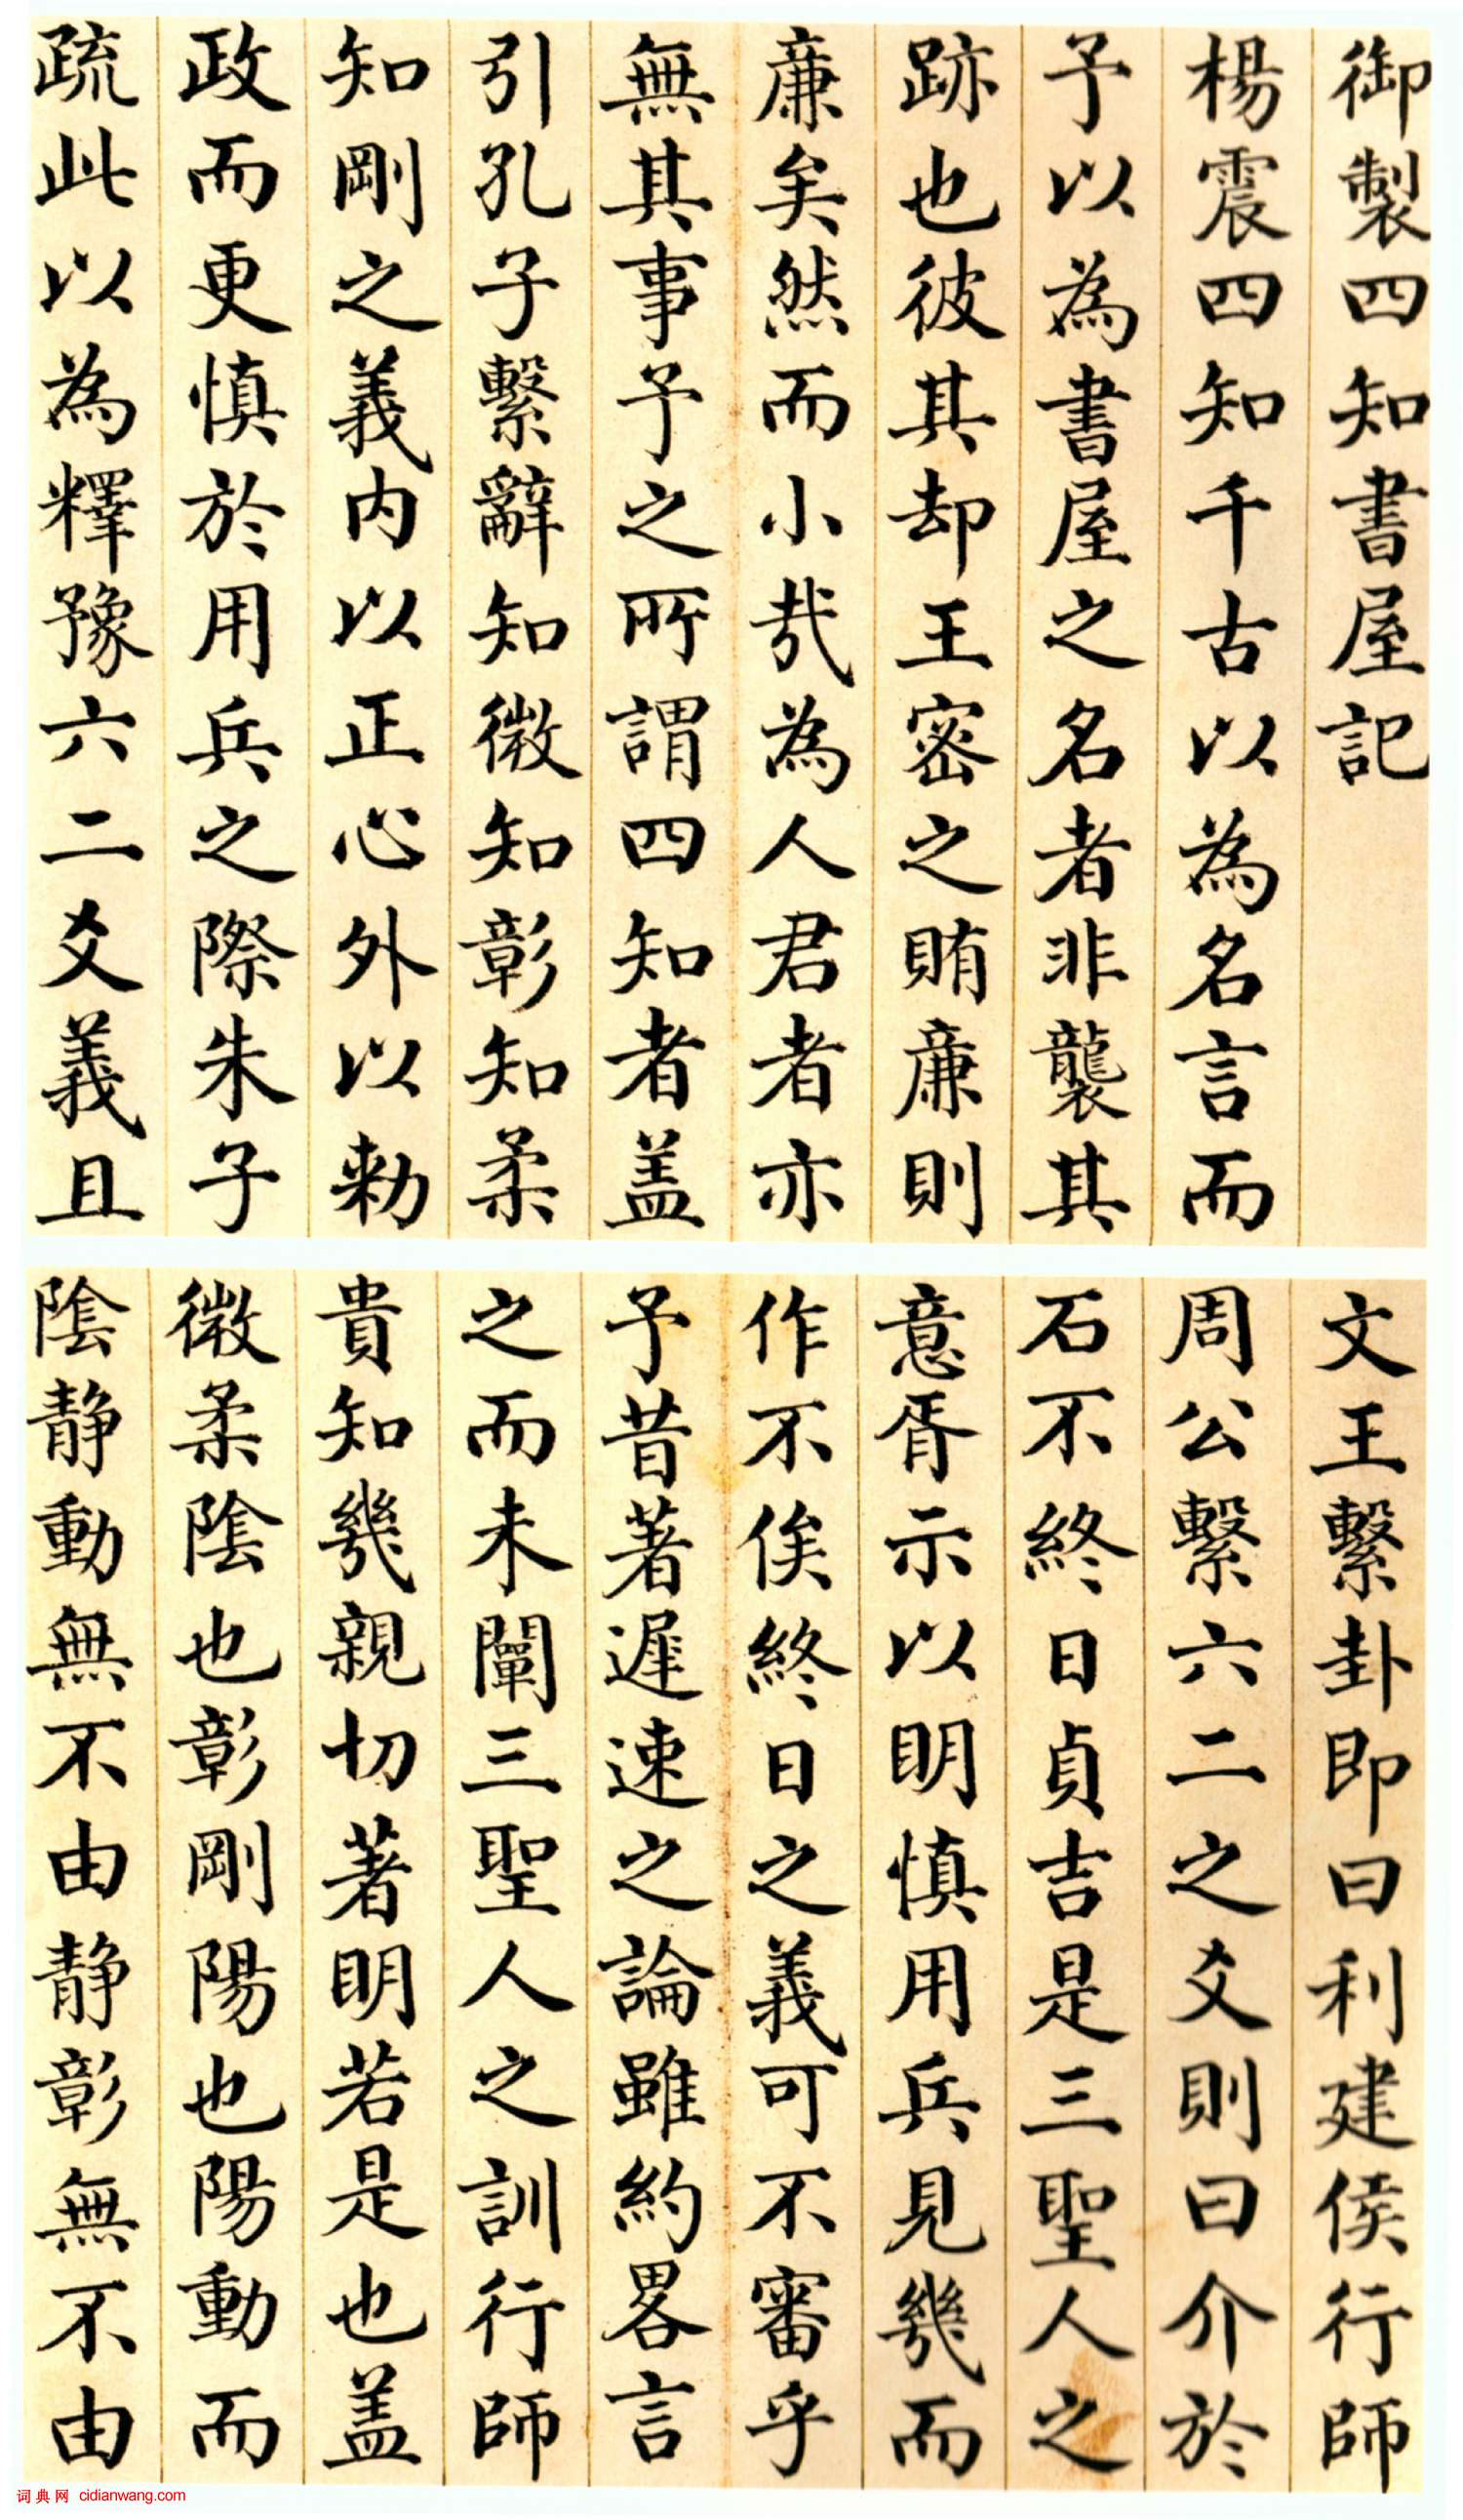 御製四知書屋記
楊震四知千古以為名言而
予以為書屋之名者非襲其
跡也彼其却王密之賄廉則
廉矣然而小哉為人君者亦
無其事予之所謂四知者盖
引孔子繫辭知微知彰知柔
知剛之義内以正心外以勑
政而更慎於用兵之際朱子
疏此以為釋豫六二爻義且
文王繫卦即曰利建侯行師
周公繫六二之爻則曰介於
石不終日貞吉是三聖人之
意胥示以明慎用兵見幾而
作不俟終日之義可不審乎
予昔著遲速之論雖約畧言
之而未闡三聖人之訓行師
貴知幾親切著明若是也盖
微柔陰也彰剛陽也陽動而
陰静動無不由静彰無不由
词典网 cidianwang.com